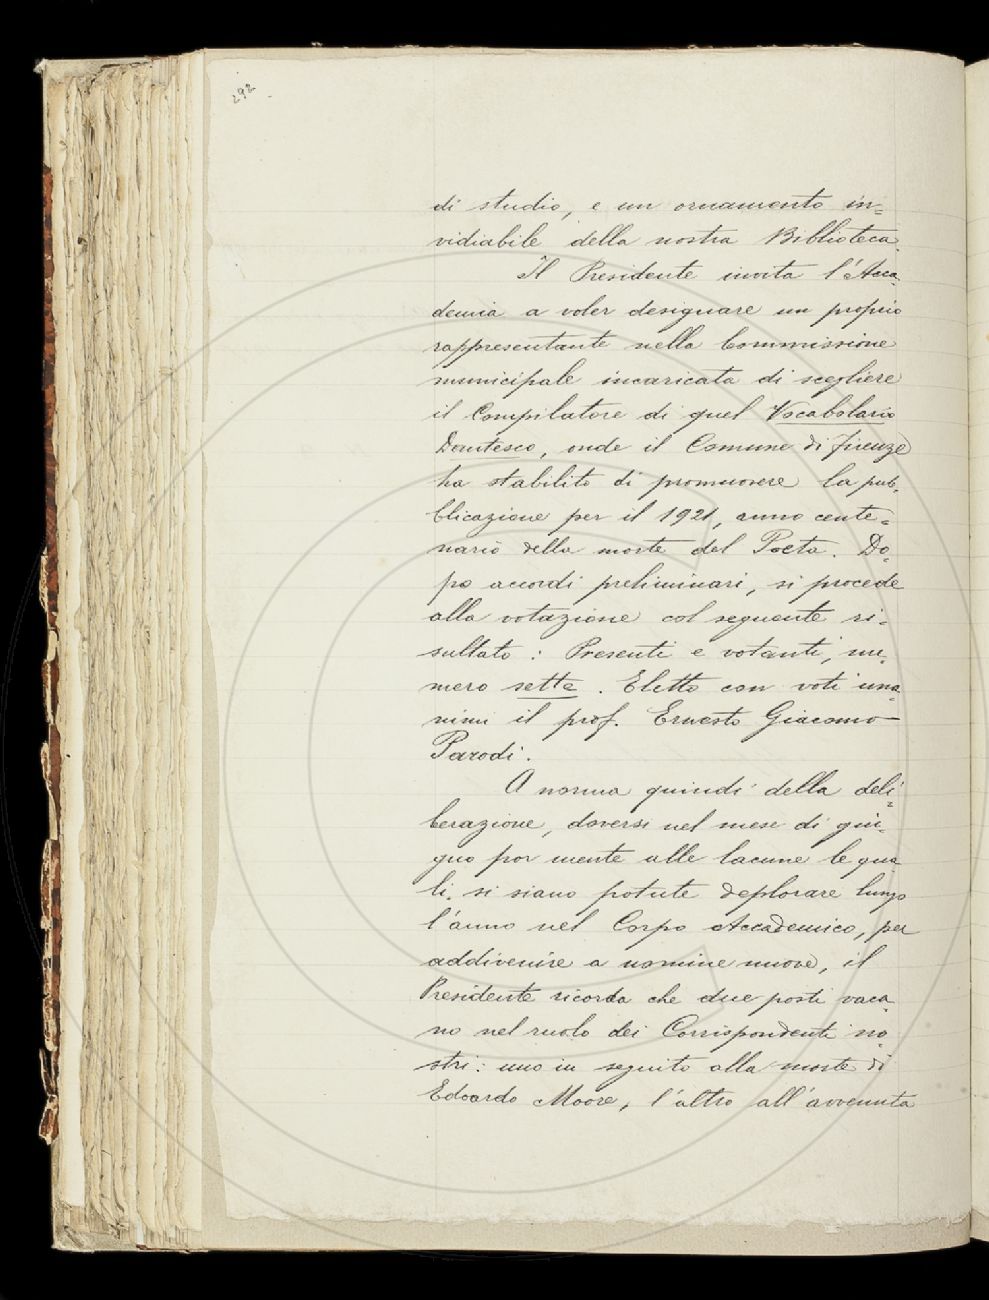 292
di studio, e un ornamento in=
vidiabile della nostra Biblioteca.
Il Presidente invita l'Acca-
demia a voler designare un proprio
rappresentante nella Commissione
municipale incaricata di scegliere
il Compilatore di quel Vocabolario
Dantesco, onde il Comune di Firenze
ha stabilito di promuovere la pub-
blicazione per il 1921, anno cente=
nario della morte del Poeta. Do-
po accordi preliminari, si procede
alla votazione col seguente ri-
sultato: Presenti e votanti, nu-
mero sette. Eletto con voti una-
nimi il prof. Ernesto Giacomo
Parodi.
A norma quindi della deli=
berazione, doversi nel mese di giu=
gno por mente alle lacune le qua
li si siano potute deplorare lungo
l'anno nel Corpo Accademico, per
addivenire a nomine nuove, il
Presidente ricorda che due posti vaca-
no nel ruolo dei Corrispondenti no-
stri: uno in seguito alla morte di
Edoardo Moore, l'altro all'avvenuta